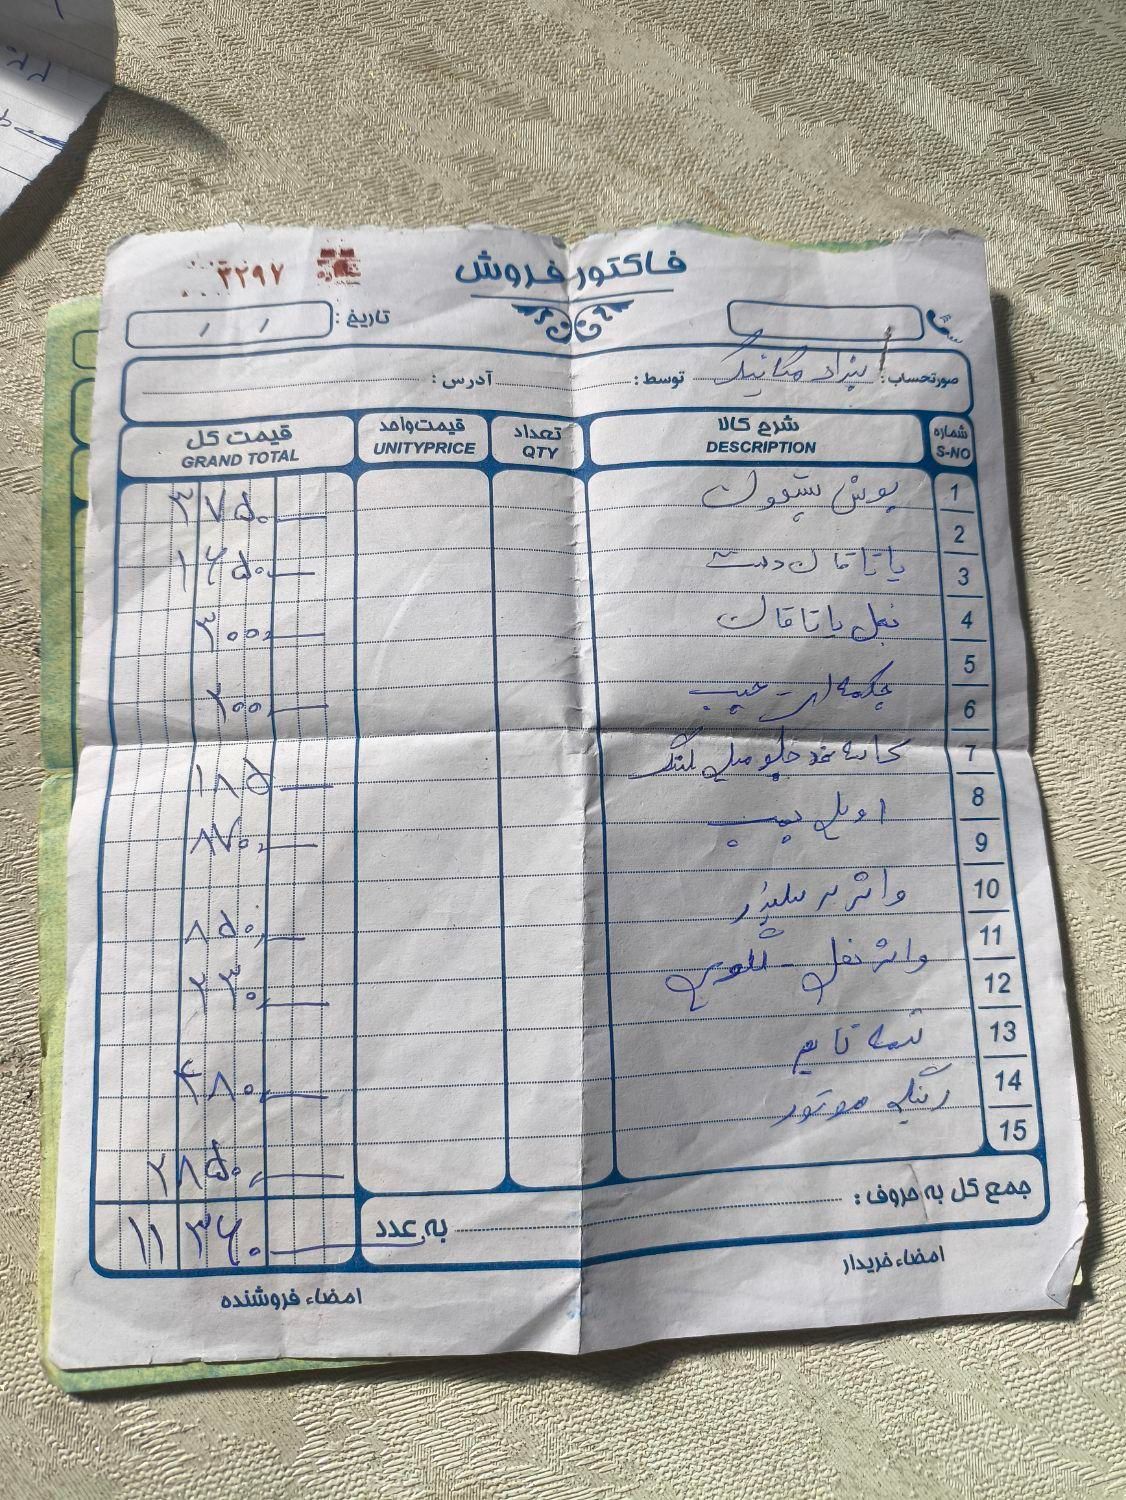 فاکتور فروش
۳۲۹۷
تاریخ : / /
صورتحساب : بهزاد مکانیک توسط : آدرس :
شماره S-NO شرح کالا DESCRIPTION تعداد QTY قیمت واحد UNITYPRICE قیمت کل GRAND TOTAL
1 بوش پستون ۳۷۵۰
2
3 یاتاقان دسته ۱۶۵۰
4 بغل یاتاقان ۳۰۰
5
6 چکمه ای - چپ ۲۰۰
7 کاسه نمد جلو میل لنگ ۱۸۵
8 اویل پمپ ۸۷۰
9
10 واشر سر سلیندر ۸۵۰
11 واشر بغل
12 ۲۳۰
13 تسمه تایم ۴۸۰
14 رینگ موتور
15 ۲۸۵۰
جمع کل به حروف :
به عدد ۱۱۳۶۰
امضاء خریدار
امضاء فروشنده